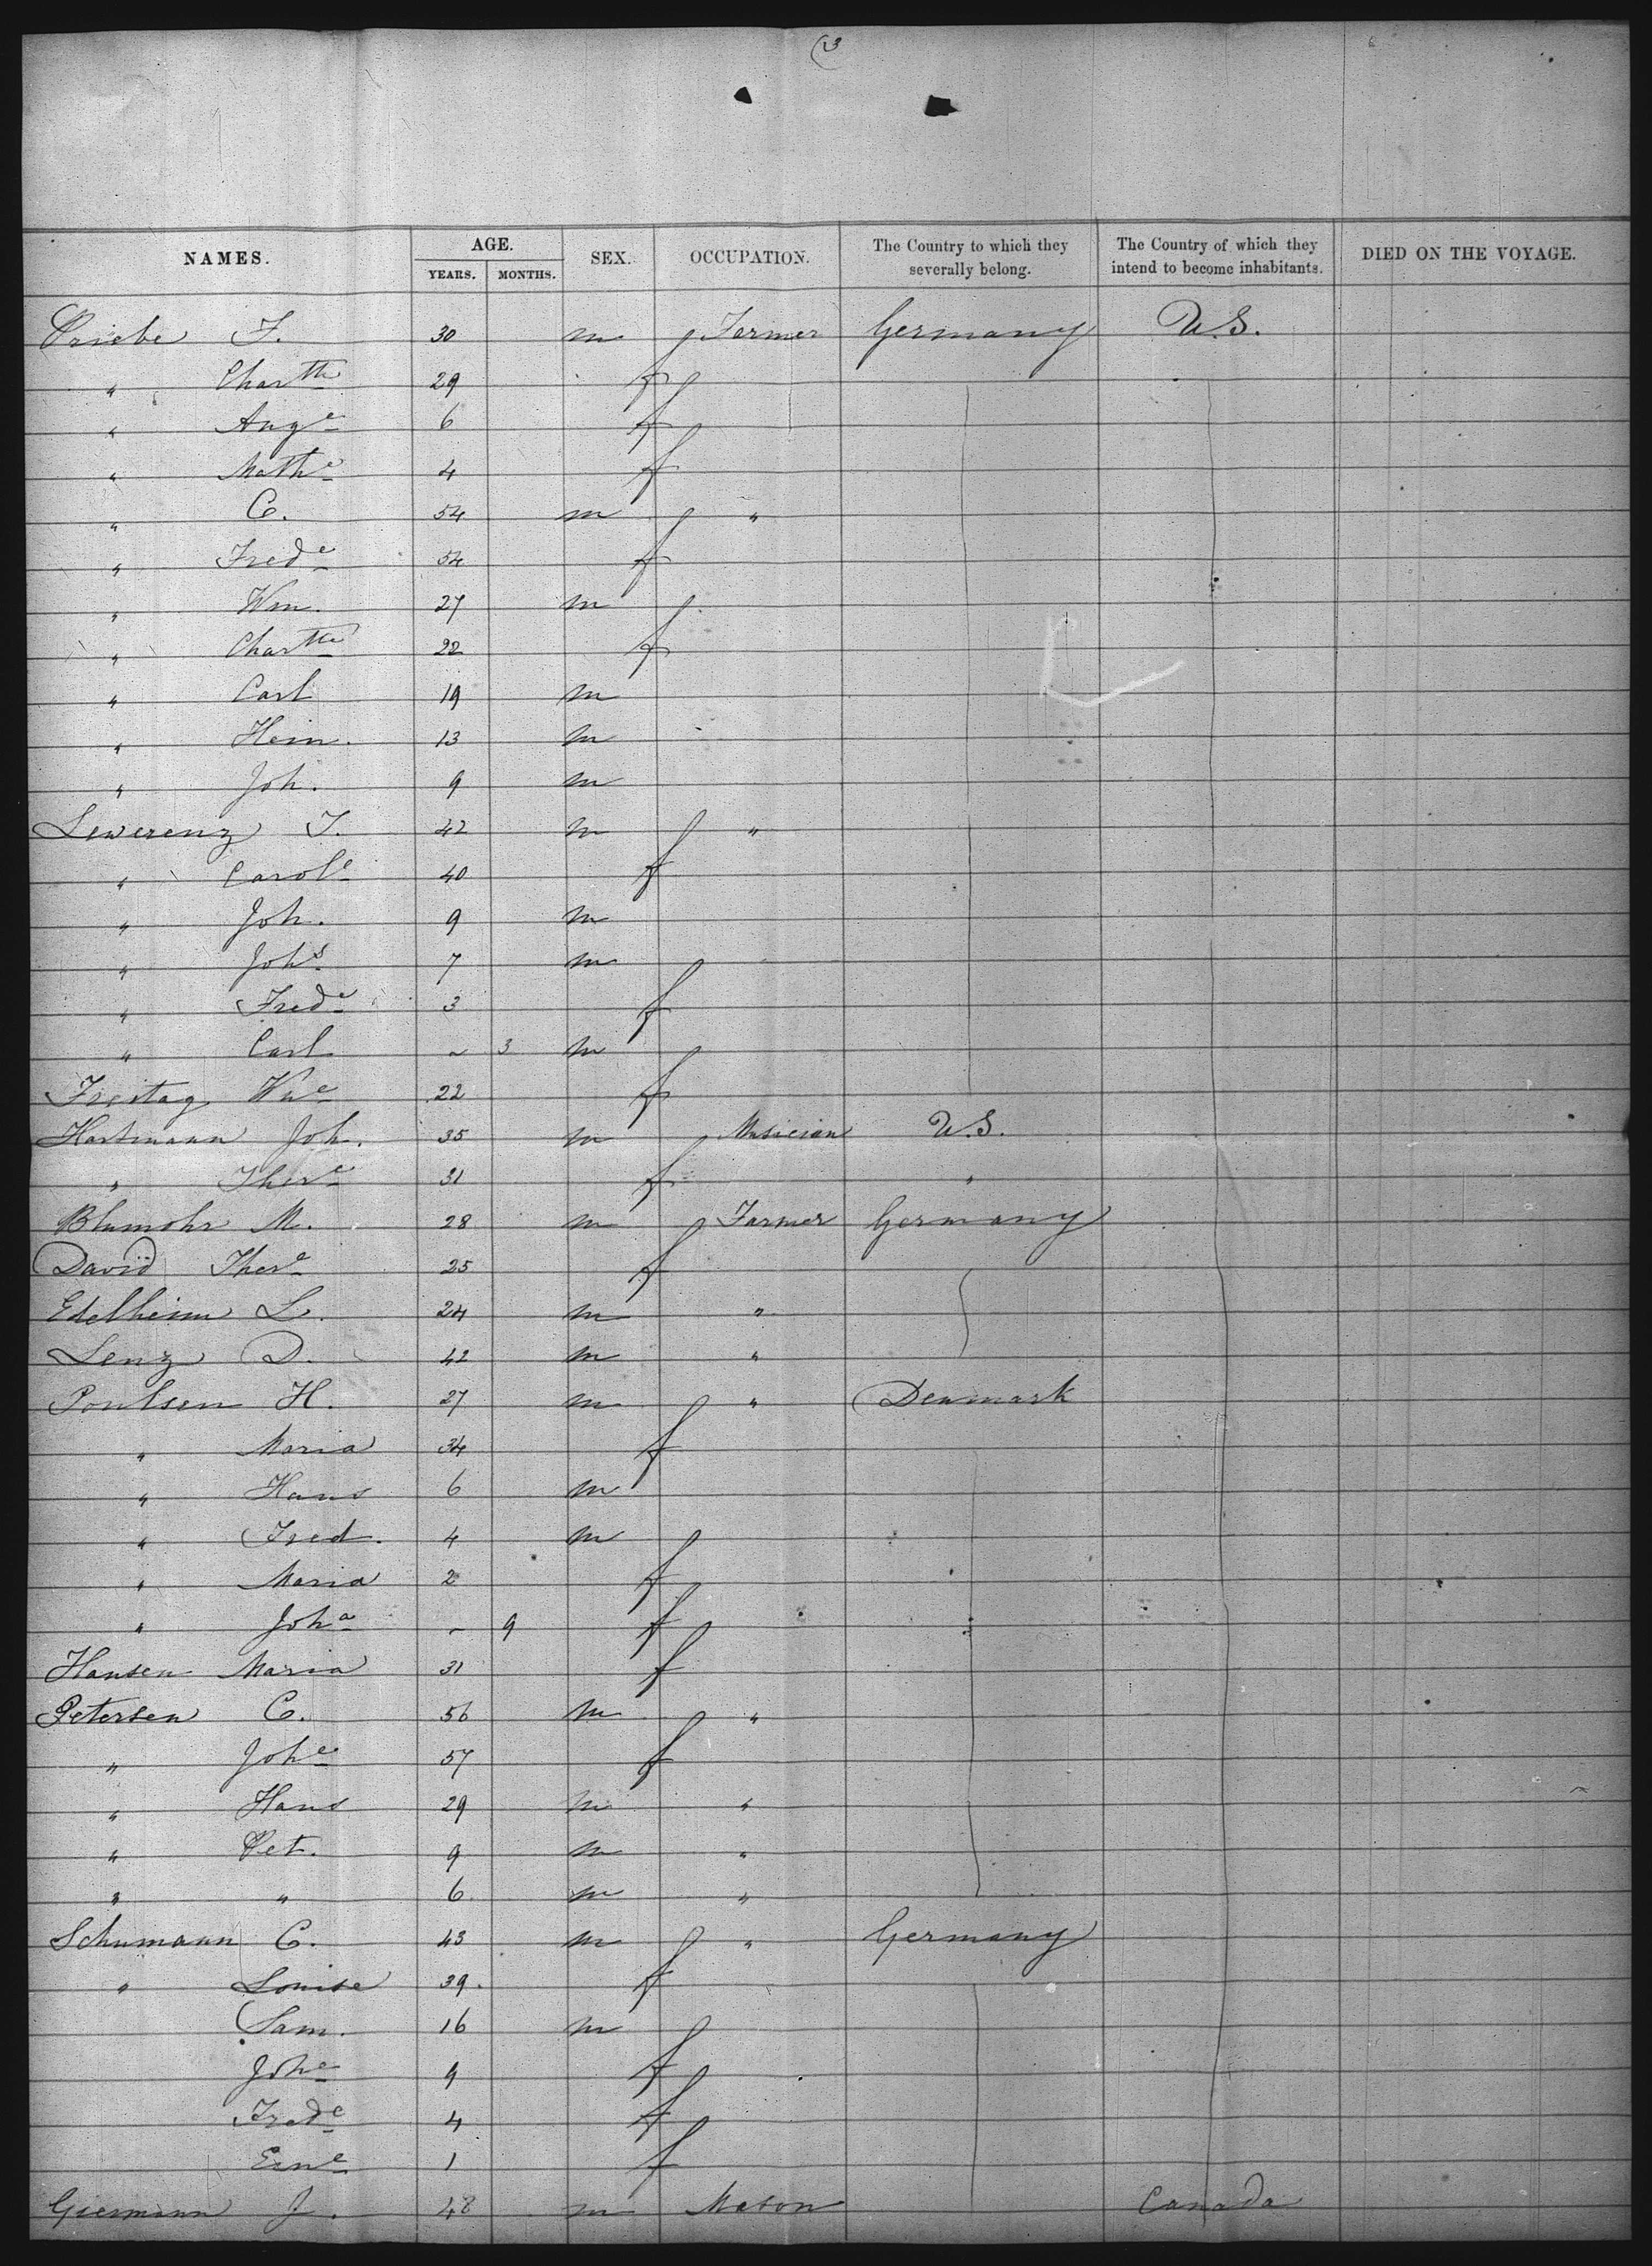 NAMES. AGE. YEARS. MONTHS. SEX. OCCUPATION. The Country to which they severally belong. The Country of which they intend to become inhabitants. DIED ON THE VOYAGE.
Priebe F. 30 m Farmer Germany U.S.
" Chartte 29 f
" Auge 6 f
" Mathe 4 f
" C. 54 m "
" Frede 54 f
" Wm. 27 m
" Chartte 22 f
" Carl 19 m
" Hein. 13 m
" Joh. 9 m
Lewerenz J. 42 m "
" Carole 40 f
" Joh. 9 m
" Johs 7 m
" Frede 3 f
" Carl ~ 3 m
Freitag Wne 22 f
Hartmann Joh. 35 m Musician U.S.
" There 31 f "
Blumohr M. 28 m Farmer Germany
David There 25 f
Edelheim L. 24 m "
Lenz D. 42 m "
Poulsen H. 27 m " Denmark
" Maria 34 f
" Hans 6 m
" Fred. 4 m
" Maria 2 f
" Joha ~ 9 f
Hansen Maria 31 f
Petersen C. 56 m "
" Johe 57 f
" Hans 29 m "
" Pet. 9 m "
" " 6 m "
Schumann C. 43 m " Germany
" Louise 39. f
Sam. 16 m
Johe 9 f
Frede 4 f
Erne 1 f
Giermann J. 48 m Mason Canada